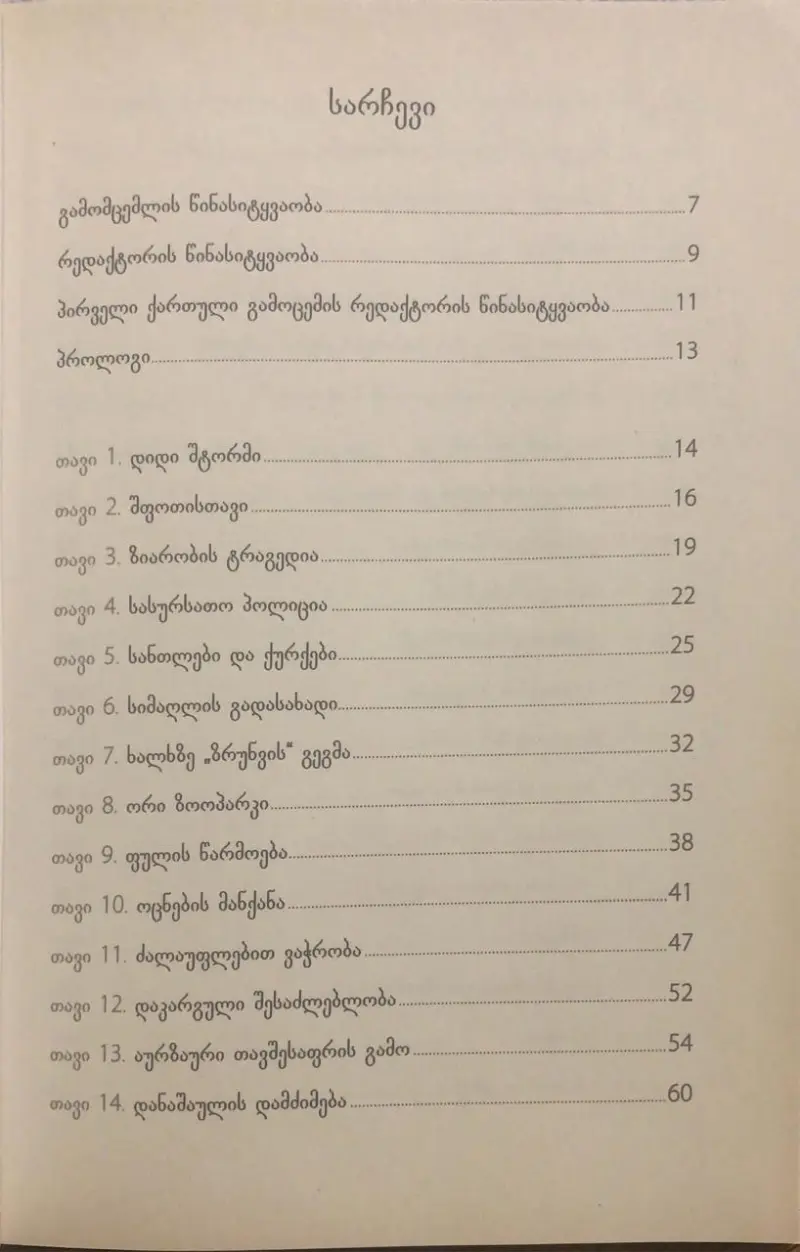 სარჩევი
გამომცემლის წინასიტყვაობა 7
რედაქტორის წინასიტყვაობა 9
პირველი ქართული გამოცემის რედაქტორის წინასიტყვაობა 11
პროლოგი 13
თავი 1. დიდი შტორმი 14
თავი 2. შფოთისთავი 16
თავი 3. ზიარობის ტრაგედია 19
თავი 4. სასურსათო პოლიცია 22
თავი 5. სანთლები და ქურქები 25
თავი 6. სიმაღლის გადასახადი 29
თავი 7. ხალხზე „ზრუნვის“ გეგმა 32
თავი 8. ორი ზოოპარკი 35
თავი 9. ფულის წარმოება 38
თავი 10. ოცნების მანქანა 41
თავი 11. ძალაუფლებით ვაჭრობა 47
თავი 12. დაკარგული შესაძლებლობა 52
თავი 13. აურზაური თავშესაფრის გამო 54
თავი 14. დანაშაულის დამძიმება 60